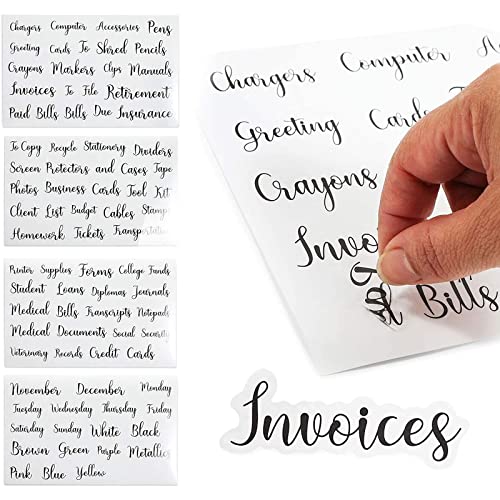 Chargers Computer Accessories Pens
Greeting Cards To Shred Pencils
Crayons Markers Clips Manuals
Invoices To File Retirement
Paid Bills Bills Due Insurance
To Copy Recycle Stationery Dividers
Screen Protectors and Cases Tape
Photos Business Cards Tool Kit
Client List Budget Cables Stamps
Homework Tickets Transportation
Printer Supplies Forms College Funds
Student Loans Diplomas Journals
Medical Bills Transcripts Notepads
Medical Documents Social Security
Veterinary Records Credit Cards
November December Monday
Tuesday Wednesday Thursday Friday
Saturday Sunday White Black
Brown Green Purple Metallics
Pink Blue Yellow
Chargers Computer A
Greeting Cards T
Crayons
Invoice
Bills
Invoices